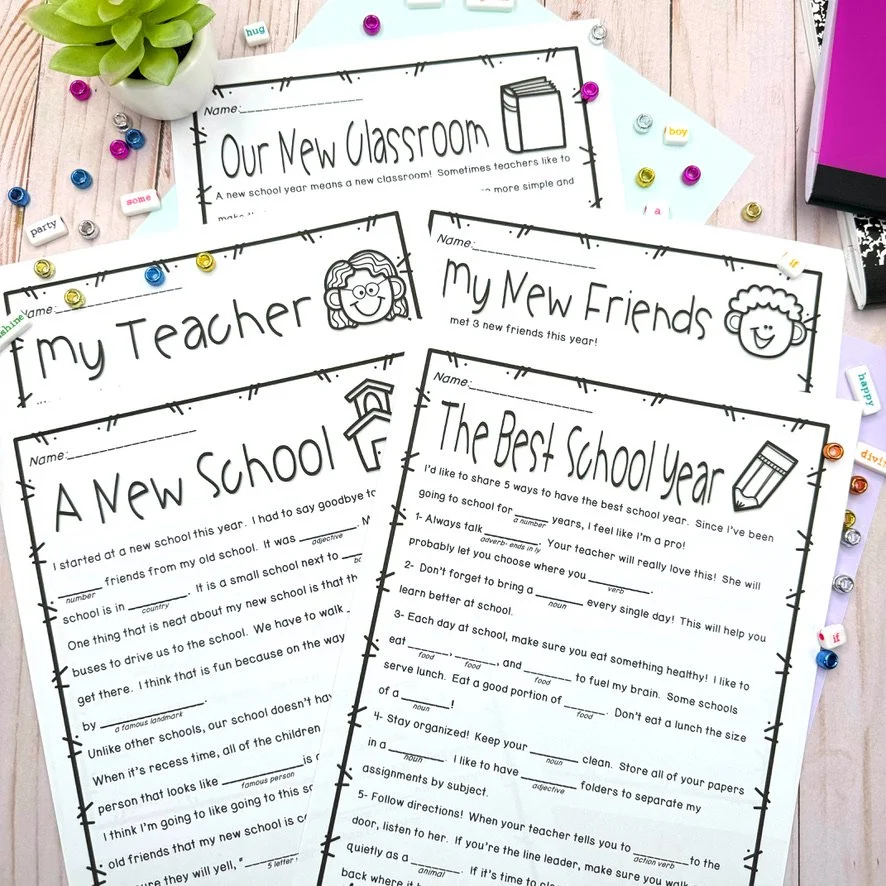 hug
Name:
Our New Classroom
A new school year means a new classroom! Sometimes teachers like to
more simple and
boy
some
party
a
if
Name:
My Teacher
shine
Name:
My New Friends
met 3 new friends this year!
happy
Name:
A New School
I started at a new school this year. I had to say goodbye to
friends from my old school. It was
number
adjective
school is in
. It is a small school next to
country
One thing that is neat about my new school is that th
buses to drive us to the school. We have to walk
get there. I think that is fun because on the way
by
.
a famous landmark
Unlike other schools, our school doesn't ha
When it's recess time, all of the children
person that looks like
is
famous person
I think I'm going to like going to this sc
old friends that my new school is c
they will yell, "
5 letter
Name:
The Best School Year
I'd like to share 5 ways to have the best school year. Since I've been
going to school for ______ years, I feel like I'm a pro!
a number
1- Always talk ______. Your teacher will really love this! She will
adverb- ends in ly
probably let you choose where you ______.
verb
2- Don't forget to bring a ______ every single day! This will help you
noun
learn better at school.
3- Each day at school, make sure you eat something healthy! I like to
eat ______, ______, and ______ to fuel my brain. Some schools
food food food
serve lunch. Eat a good portion of ______. Don't eat a lunch the size
food
of a ______!
noun
4- Stay organized! Keep your ______ clean. Store all of your papers
noun
in a ______. I like to have ______ folders to separate my
noun adjective
assignments by subject.
5- Follow directions! When your teacher tells you to ______ to the
action verb
door, listen to her. If you're the line leader, make sure you walk
quietly as a ______. If it's time to
animal
back where it
if